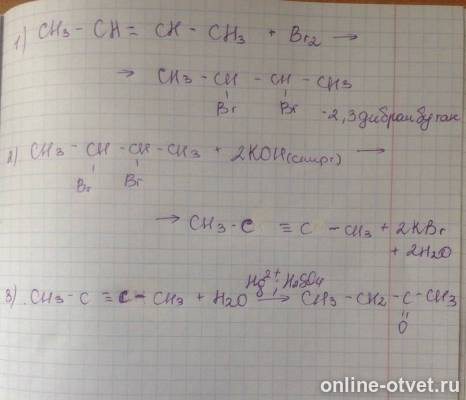 1) CH3 - CH = CH - CH3 + Br2 →
→ CH3 - CH - CH - CH3
Br Br - 2,3 дибромбутан
2) CH3 - CH - CH - CH3 + 2KOH (спирт) →
Br Br
→ CH3 - C ≡ C - CH3 + 2KBr
+ 2H2O
3) CH3 - C ≡ C - CH3 + H2O Hg2+, H2SO4 → CH3 - CH2 - C - CH3
O
online-otvet.ru